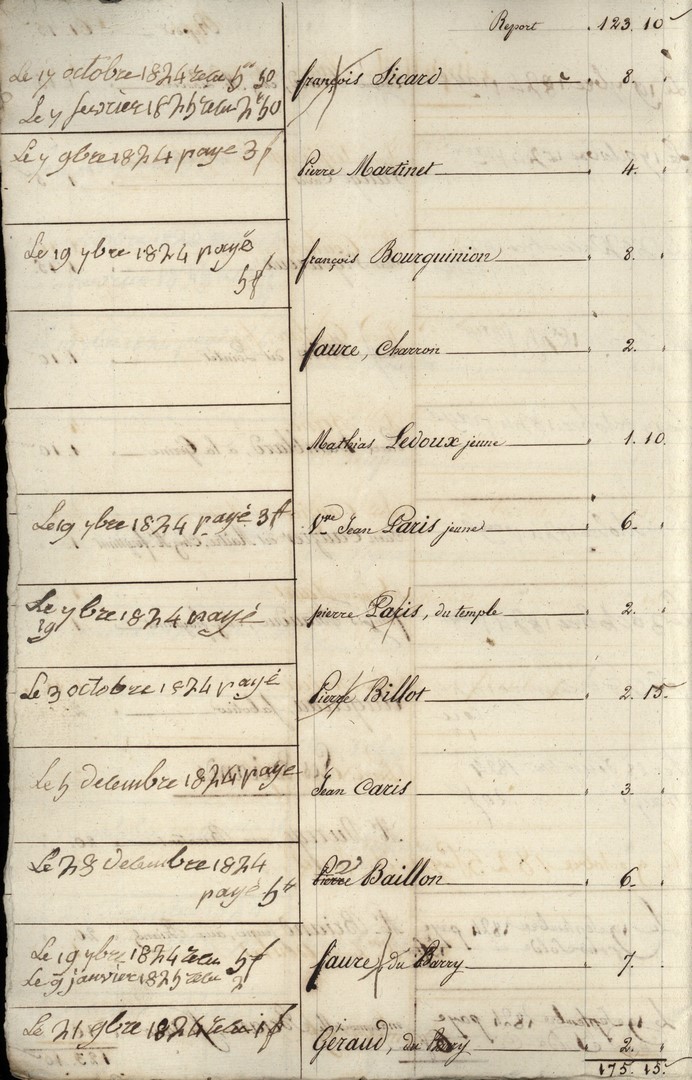 Report 123. 10
Le 17 octobre 1824 reçu 5ᶠ 50
françois Sicard 8.
Le 7 fevrier 1825 reçu 2ᶠ 50
Le 7 9bre 1824 payé 3f
Pierre Martinet 4.
Le 19 7bre 1824 payé
5f
françois Bourguinion 8.
faure, Charron 2.
Mathias Ledoux jeune 1. 10.
Le 19 7bre 1824 payé 3f
Vve Jean Paris jeune 6.
Le 7bre 1824 payé
19
pierre Paris, du temple 2.
Le 3 octobre 1824 payé
Pierre Billot 2. 15.
Le 5 decembre 1824 payé
Jean Caris 3.
Le 23 decembre 1824
payé 5f
Baillon 6.
Le 19 7bre 1824 reçu 5f
Le 9 janvier 1825 reçu 2
faure, du Barry 7.
Le 21 9bre 1824 reçu 1f
Géraud, du Barry 2.
175. 15.